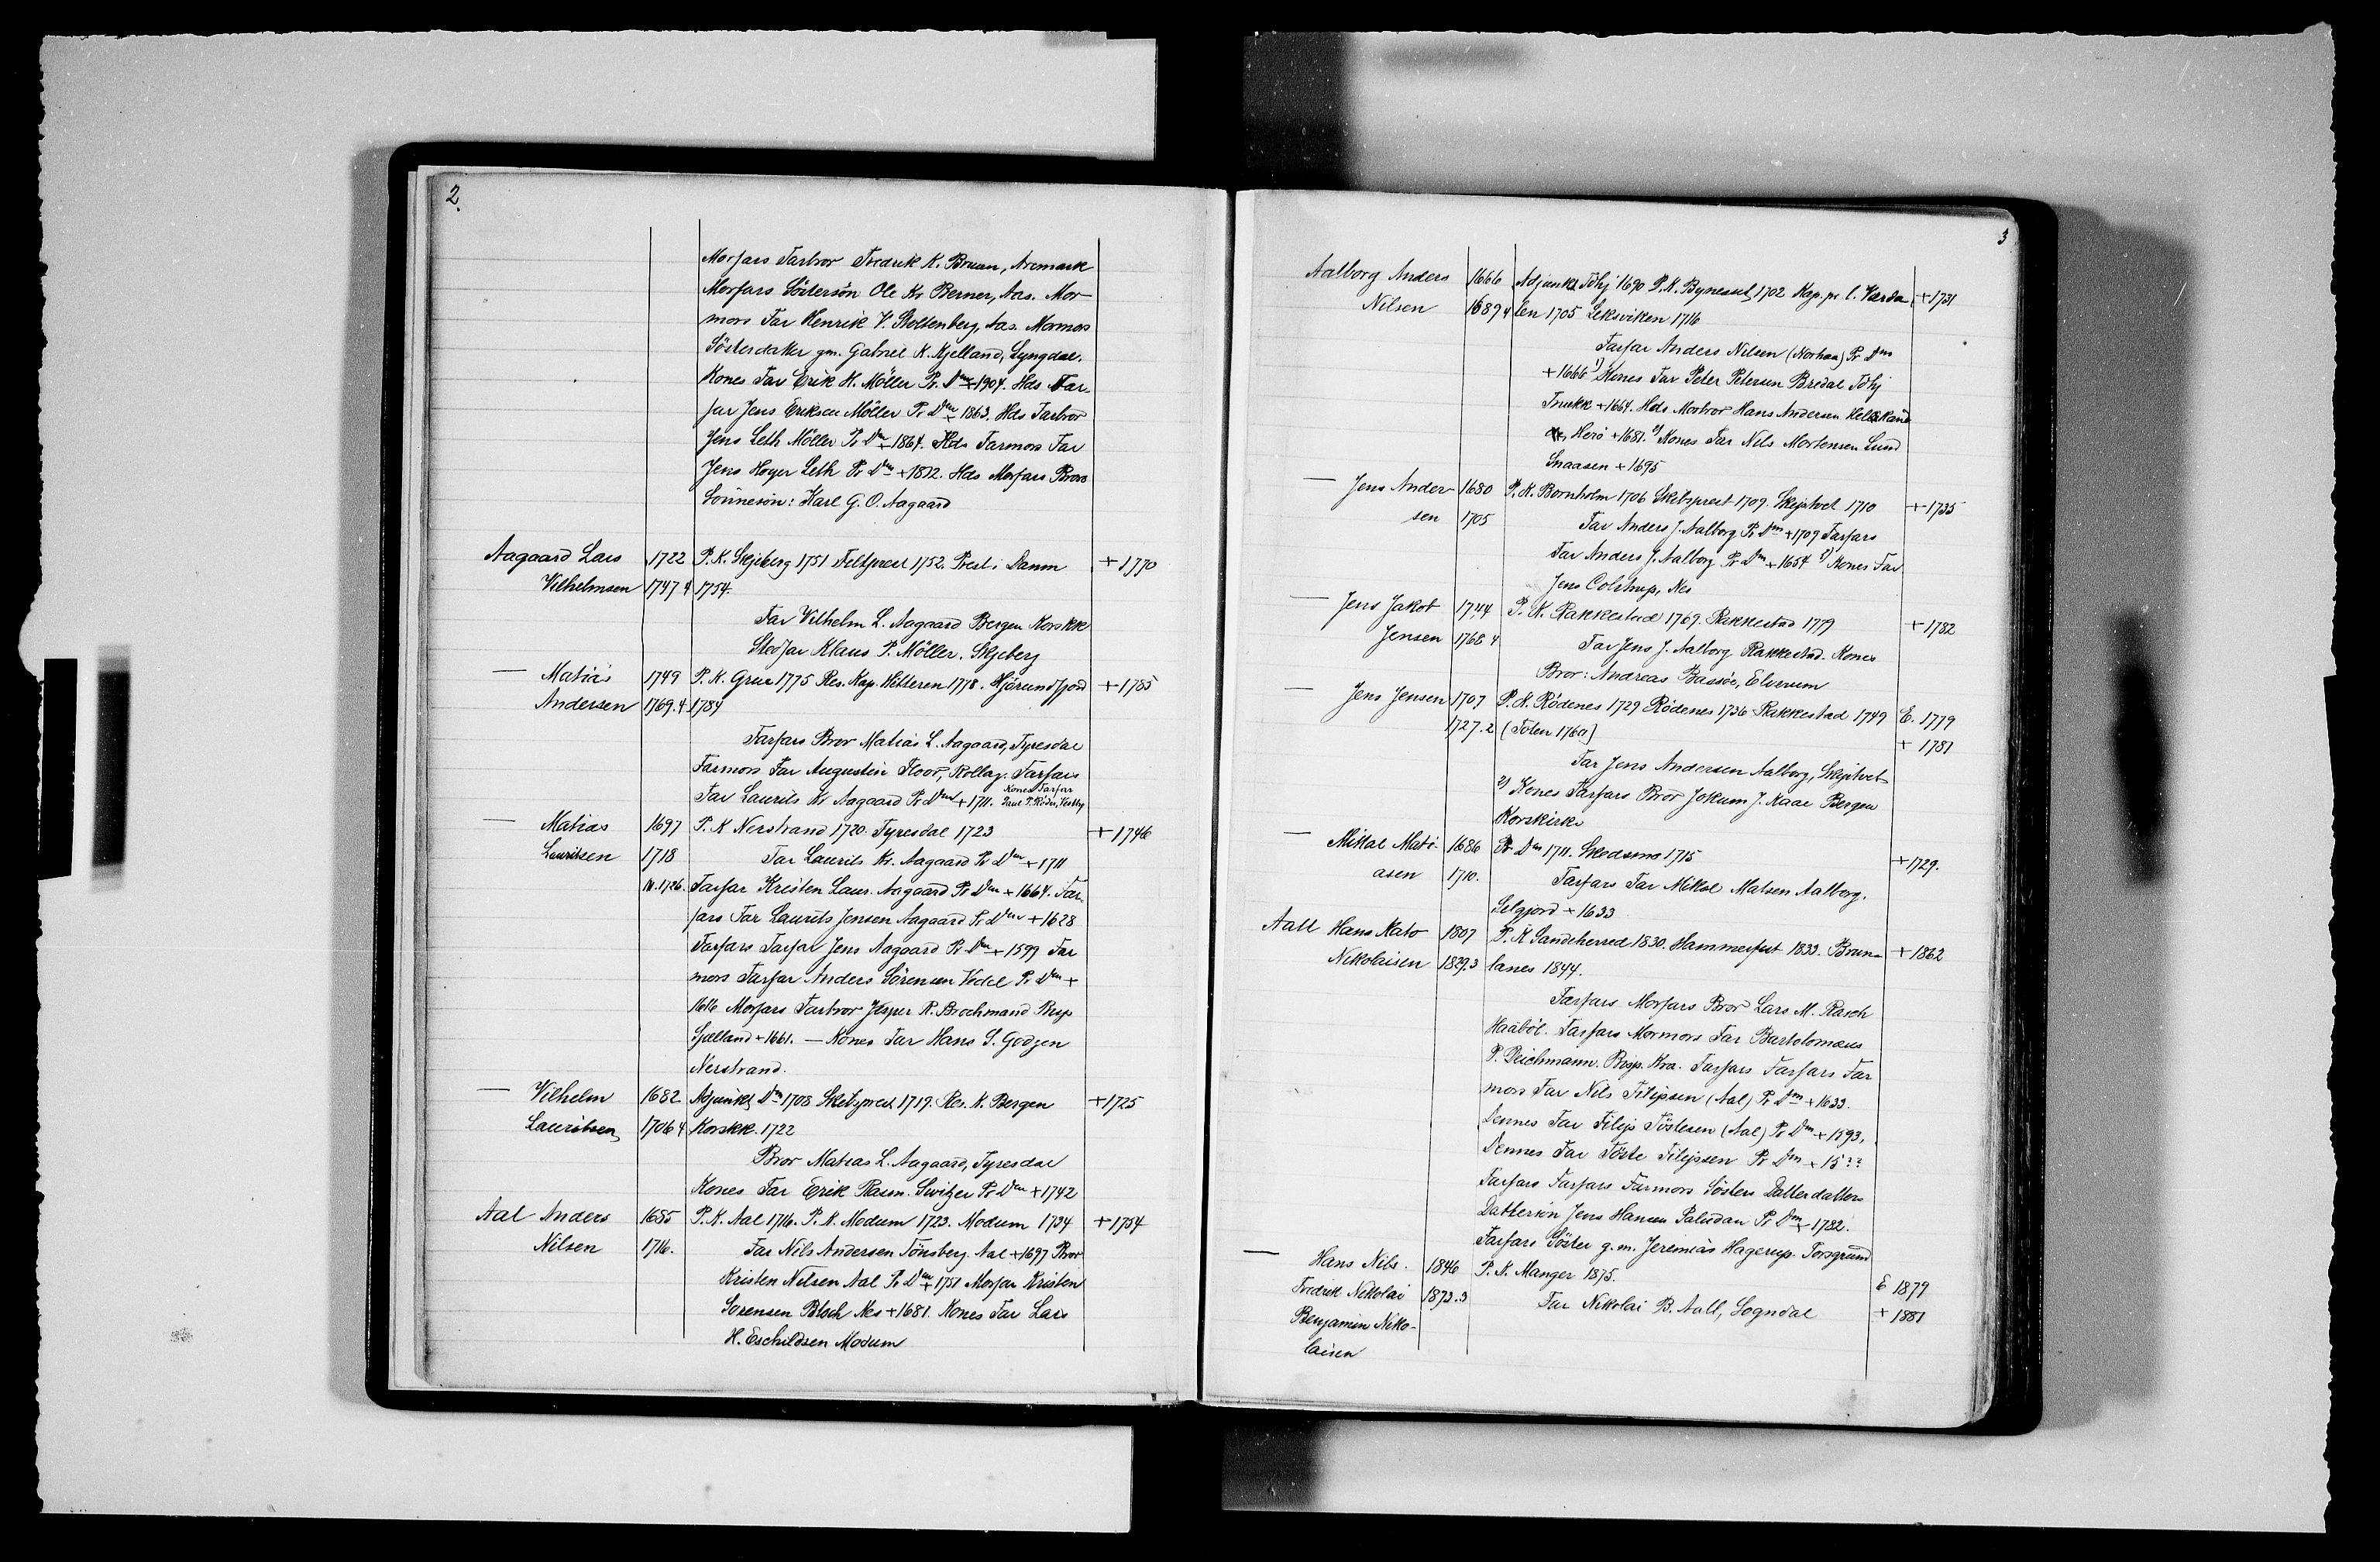 2.
Morfars Farbror Fredrik K. Bruun, Aremark
Morfars Söstersön Ole Kr Berner, Aas. Mor-
mors Far Henrik V. Stoltenberg, Aas. Mormors
Sösterdatter gm. Gabriel K. Kjelland, Lyngdal.
Kones Far Erik H. Möller Pr. Dm + 1904. Hds Far-
far Jens Eriksen Möller Pr Dm + 1863. Hds Farbror
Jens Leth Möller Pr Dm + 1864. Hds Farmors Far
Jens Hoyer Leth Pr Dm + 1872. Hds Morfars Brors
Sönnesön: Karl G. O. Aagaard
Aagaard Lars 1722 P. K. Skjeberg 1751 Feltprest 1752. Prest i Danm + 1770
Vilhelmsen 1747 4 1754.
Far Vilhelm L. Aagaard Bergen Korskk
Stedfar Klaus P. Möller. Skjeberg
— Matias 1749 P. K. Grue 1775 Res. Kap. Hitteren 1778. Hjörundfjord + 1785
Andersen 1769.4 1784
Farfars Bror Matias L. Aagaard, Tyresdal
Farmors Far Augustin Floor, Rollag. Farfars
Far Laurits Kr Aagaard Pr Dm + 1711. Kones Farfar
— Matias 1697 P. K Nerstrand 1720. Tyresdal 1723 + 1746
Lauritsen 1718 Far Laurits Kr. Aagaard Pr Dm + 1711
M. 1726. Farfar Kristen Laur. Aagaard Pr Dm + 1664. Far-
fars Far Laurits Jensen Aagaard Pr Dm + 1628
Farfars Farfar Jens Aagaard Pr Dm + 1599 Far
mors Farfar Anders Sörensen Vedel Pr Dm +
1616 Morfars Farbror Jesper R. Brochmand Bisp
Sjælland + 1661. — Kones Far Hans S. Godzen
Nerstrand.
— Vilhelm 1682. Adjunkt Dm 1708 Skibsprest 1717. Res. K. Bergen + 1725
Lauritsen 1706 4 Korskk. 1722
Bror Matias L. Aagaard, Tyresdal
Kones Far Erik Rasm. Switzer Pr Dm + 1742
Aal Anders 1685 P. K. Aal 1716. P. K. Modum 1723. Modum 1734 + 1754
Nilsen 1716. Far Nils Andersen Tönsberg. Aal + 1697 Bror
Kristen Nilsen Aal Pr Dm + 1751 Morfar Kristen
Sorensen Bloch Nes + 1681. Kones Far Lars
H. Eschildsen Modum
3
Aalborg Anders 1666 Adjunkt Tdhj 1690 P. K. Bynesset 1702 Kap. pr l. Værda + 1731
Nilsen 1689 4 len 1705 Leksviken 1716
Farfar Anders Nilsen (Norhaa) Pr Dm
+ 1666 1) Kones Far Peter Petersen Bredal Tdhj
Fruekk + 1664. Hds Morbror Hans Andersen
Herö + 1681. 2) Kones Far Nils Mortensen Lund
Snaasen + 1695
— Jens Ander- 1680 P. K. Bornholm 1706 Skibsprest 1709. Skjptvet 1710 + 1735
sen 1705 Far Anders J. Aalborg Pr Dm + 1709 Farfars
Far Anders J. Aalborg Pr Dm + 1654 2) Kones Far
Jens Colstrup, Nes
— Jens Jakob 1744 P. K. Rakkestad 1769. Rakkestad 1779 + 1782
Jensen 1768 4 Far Jens J. Aalborg Rakkestad. Kones
Bror: Andreas Bassöe, Elverum
— Jens Jensen 1707 P. K. Rödenes 1729 Rödenes 1736 Rakkestad 1749 E. 1779
1727.2 (Toten 1760) + 1781
Far Jens Andersen Aalborg, Skjptvet
2) Kones Farfars Bror Jokum J. Kaae Bergen
Korskirke
— Mikal Mati- 1686 Pr Dm 1711. Skedsmo 1715 + 1729.
asen 1710. Farfars Far Mikal Matsen Aalborg.
Selgjord + 1633
Aall Hans Kato 1807 P. K Sandeherred 1830. Hammerfest 1833. Brun- + 1862
Nikolaisen 1829.3 lanes 1844.
Farfars Morfars Bror Lars M. Rasch
Haaböl. Farfars Mormors Far Bartolomæus
P. Deichmann. Bisp. Kra. Farfars Farfars Far
mors Far Nils Filipsen (Aal) Pr Dm + 1633.
Dennes Far Filip Töstesen (Aal) Pr Dm + 1593.
Dennes Far Töste Filipsen Pr Dm + 15??
Farfars Farfars Farmors Sösters Datterdatters
Dattersön Jens Hansen Paludan Pr Dm + 1782.
Farfars Söster g.m. Jeremias Hagerup. Porsgrund
— Hans Nils 1846 P. K. Manger 1875. E 1879
Fredrik Nikolai 1873.3 Far Nikolai B. Aall, Sogndal + 1881
Benjamin Niko-
laisen